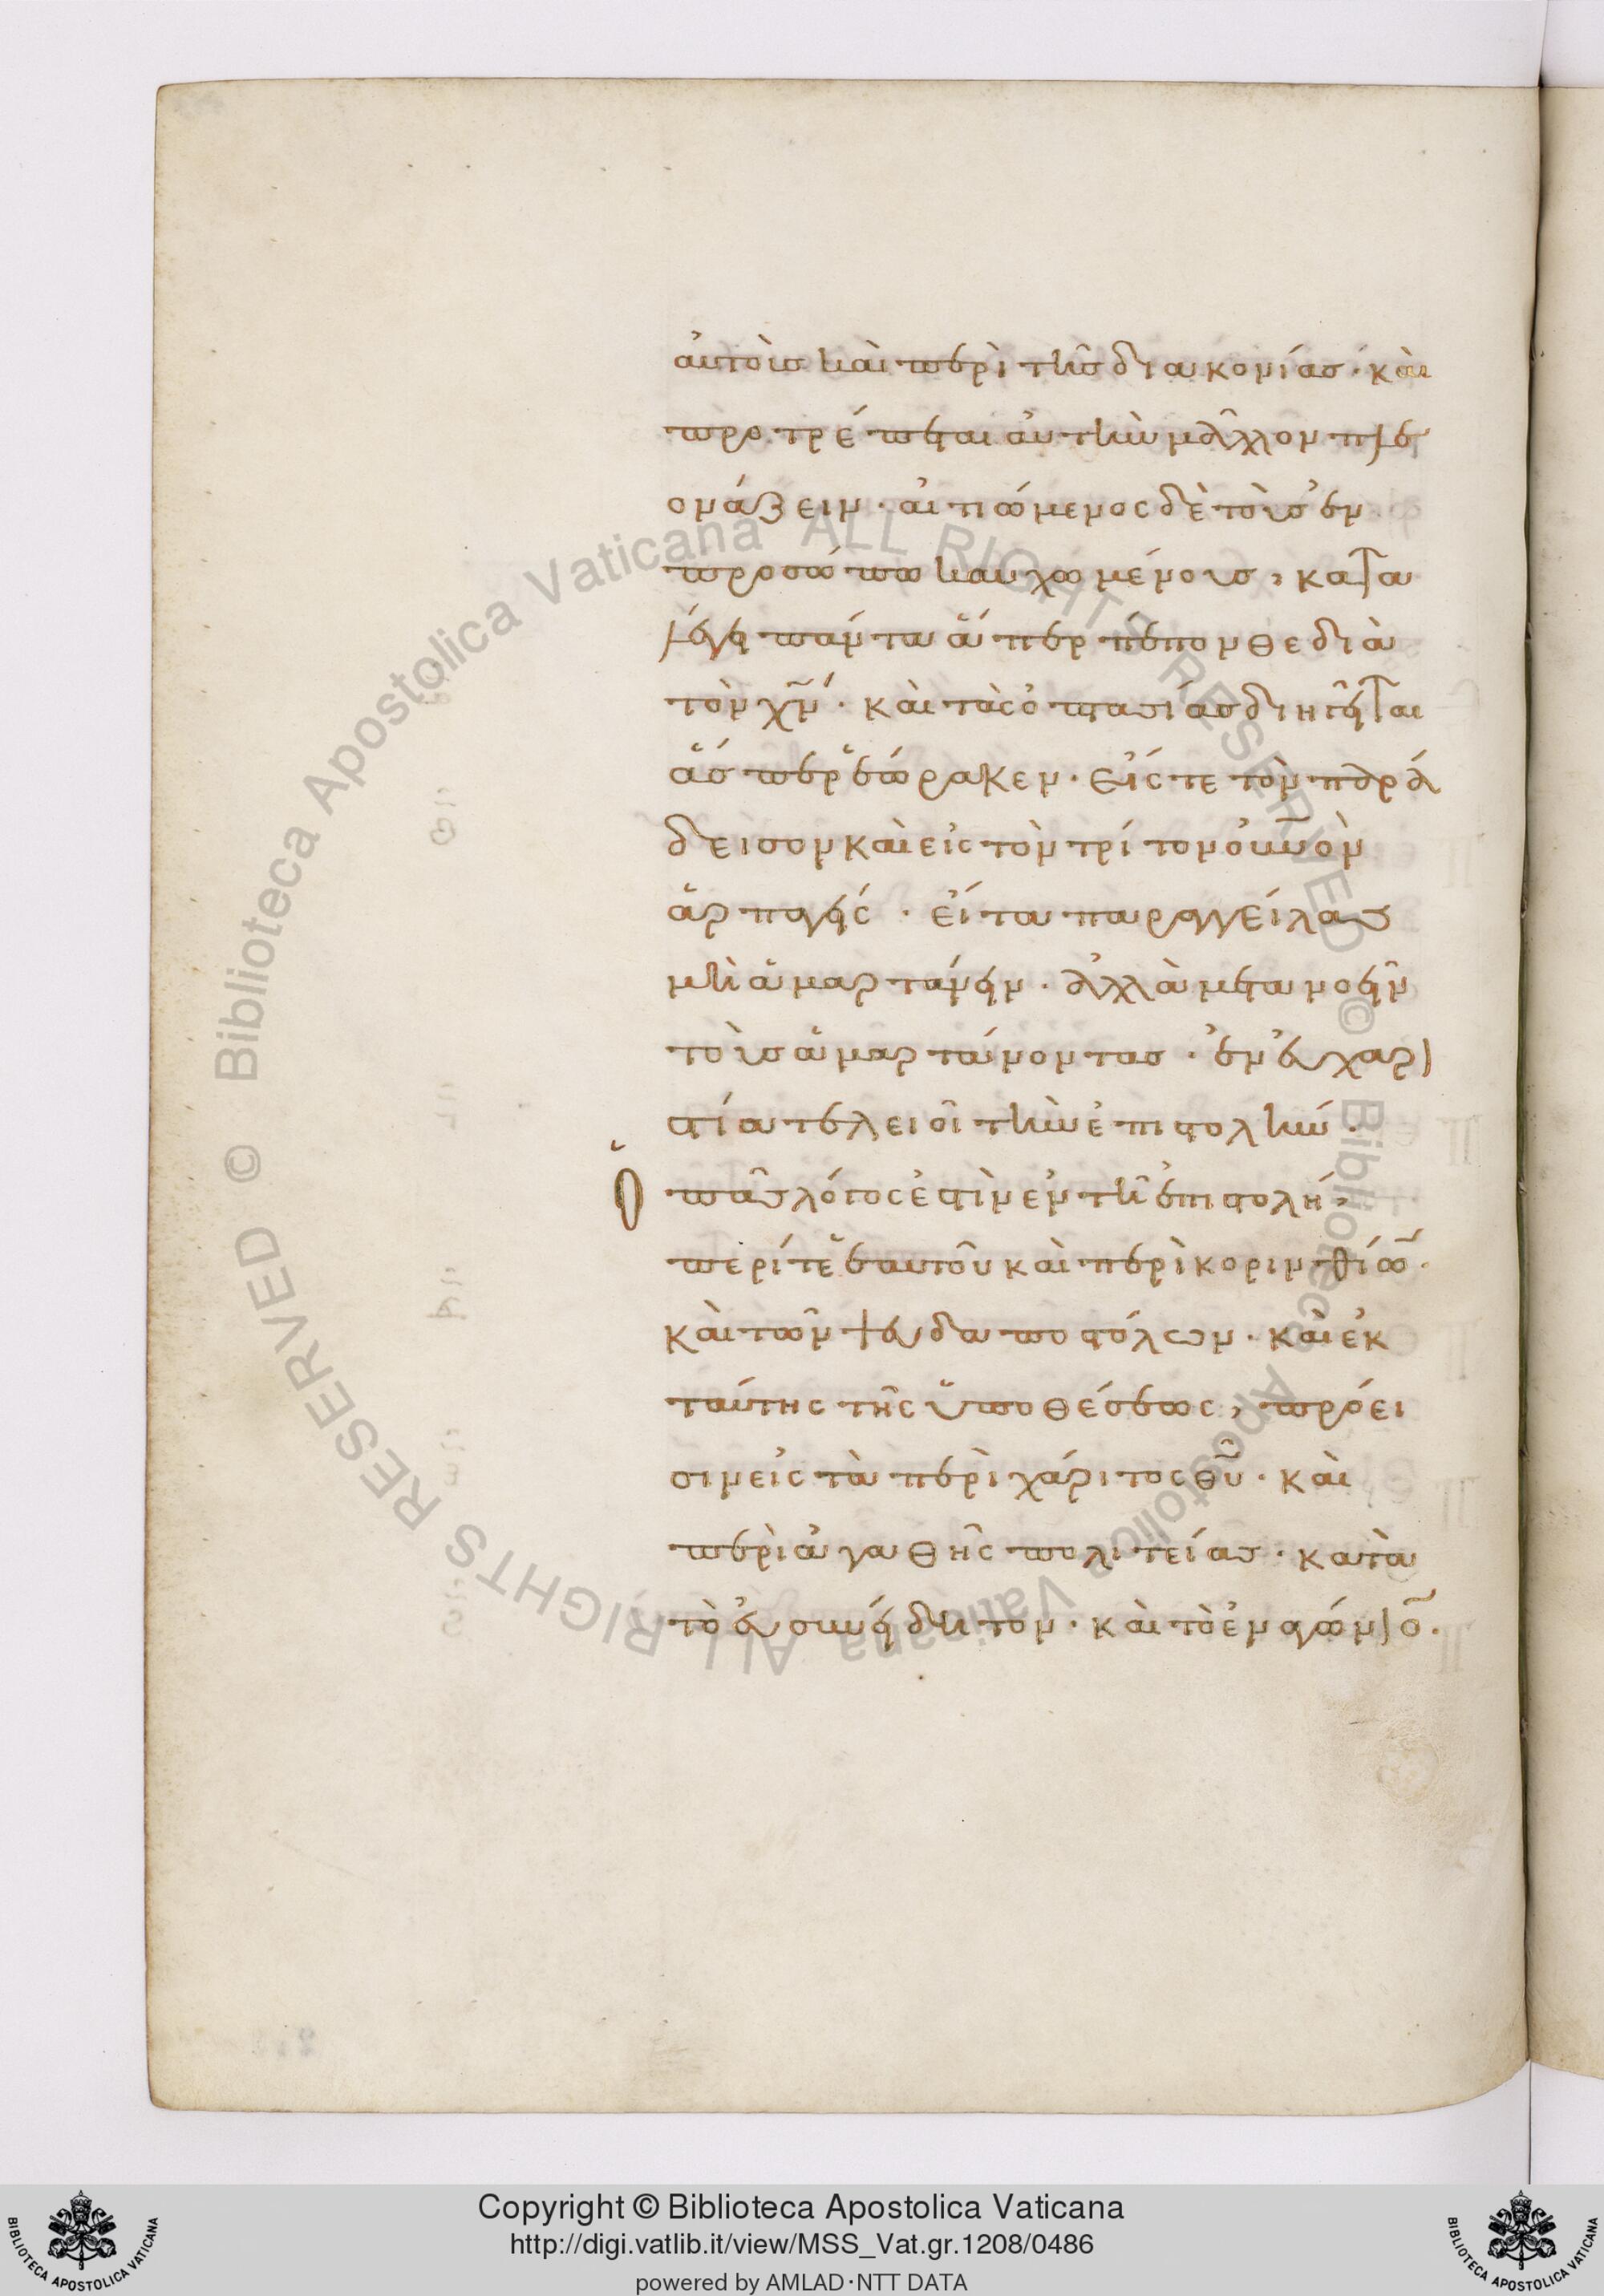 αὐτοῖς καὶ περὶ τῆς διακονίας· καὶ
προτρέπεται αὐτὴν μᾶλλον πλε
ονάζειν· αἰτιώμενος δὲ τοῖς ἐν
προσώπω καυχωμένοις, κατα
λέγει πάντα ἅπερ πέπονθε διὰ
τὸν χν· καὶ τὰς ὀπτασίας διηγεῖται
ἅσπερ ἑώρακεν· εἴς τε τὸν παρά
δεισον καὶ εἰς τὸν τρίτον οὐνὸν
ἁρπαγείς· εἶτα παραγγείλας
μὴ ἁμαρτάνειν· ἀλλὰ μετανοεῖν
τοὺς ἁμαρτάνοντας· ἐν εὐχαρι
στία τελειοῖ τὴν ἐπιστολήν·
Ὁ πᾶς λόγος ἐστὶν ἐν τῆ ἐπιστολῆ,
περί τε ἑαυτοῦ καὶ περὶ κορινθίων·
καὶ τῶν ψευδαποστόλων· καὶ ἐκ
ταύτης τῆς ὑποθέσεως, πρόει
σιν εἰς τὰ περὶ χάριτος θυ· καὶ
περὶ ἀγαθῆς πολιτείας· κατὰ
τὸ εὐσυνείδητον· καὶ τὸ ἐναγώνιον·
Copyright © Biblioteca Apostolica Vaticana
http://digi.vatlib.it/view/MSS_Vat.gr.1208/0486
powered by AMLAD·NTT DATA
BIBLIOTECA APOSTOLICA VATICANA
BIBLIOTECA APOSTOLICA VATICANA
© Biblioteca Apostolica Vaticana ALL RIGHTS RESERVED
© Biblioteca Apostolica Vaticana ALL RIGHTS RESERVED